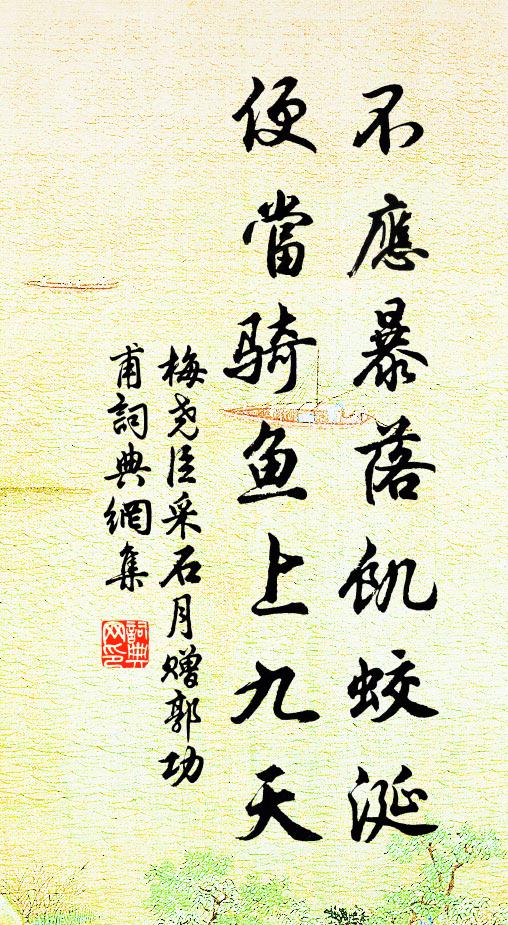 不應暴落飢蛟涎
便當騎魚上九天
梅堯臣采石月贈郭功
甫詞典網集
詞典網印